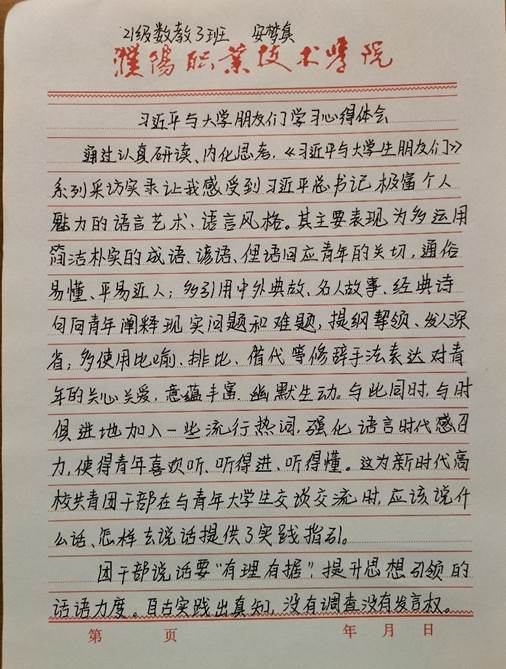 21级数教3班 安梦真
濮阳职业技术学院
习近平与大学朋友们学习心得体会
通过认真研读、内化思考,《习近平与大学生朋友们》
系列采访实录让我感受到习近平总书记极富个人
魅力的语言艺术、语言风格。其主要表现为多运用
简洁朴实的成语、谚语、俚语回应青年的关切,通俗
易懂、平易近人;多引用中外典故、名人故事、经典诗
句向青年阐释现实问题和难题,提纲挈领、发人深
省;多使用比喻、排比、借代等修辞手法表达对青
年的关心关爱,意蕴丰富、幽默生动。与此同时,与时
俱进地加入一些流行热词,强化语言时代感召
力,使得青年喜欢听、听得进、听得懂。这为新时代高
校共青团干部在与青年大学生交谈交流时,应该说什
么话、怎样去说话提供了实践指引。
团干部说话要“有理有据”,提升思想引领的
话语力度。自古实践出真知,没有调查没有发言权。
第 页 年 月 日